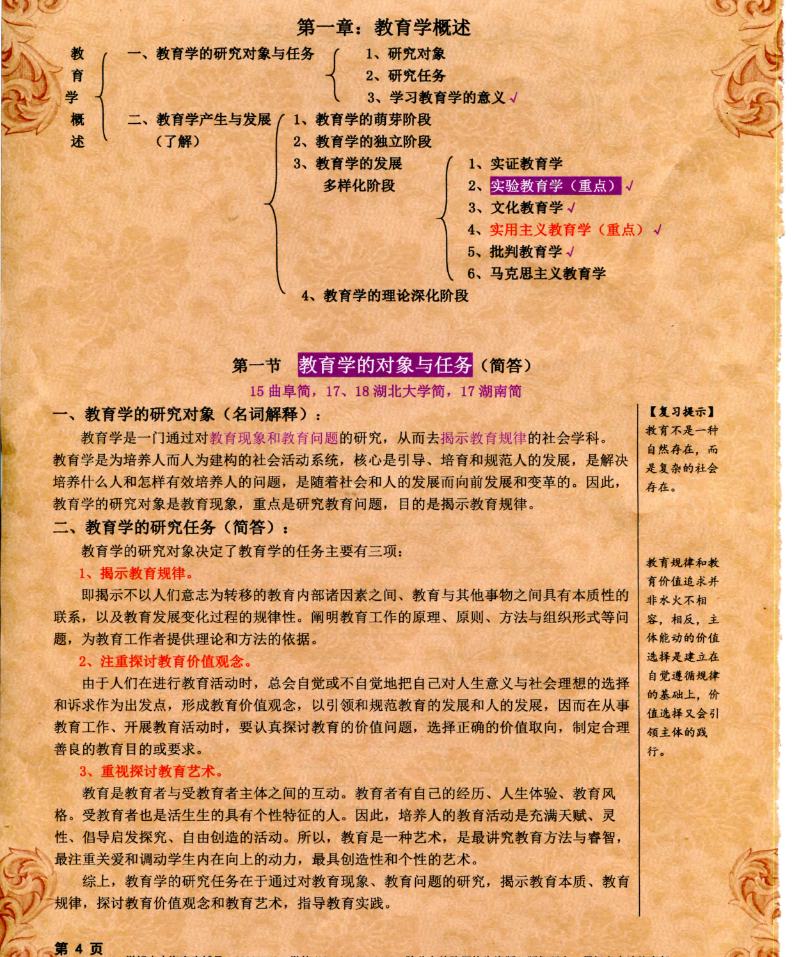 第一章：教育学概述
教育学概述
一、教育学的研究对象与任务
1、研究对象
2、研究任务
3、学习教育学的意义√
二、教育学产生与发展
（了解）
1、教育学的萌芽阶段
2、教育学的独立阶段
3、教育学的发展
多样化阶段
1、实证教育学
2、实验教育学（重点）√
3、文化教育学√
4、实用主义教育学（重点）√
5、批判教育学√
6、马克思主义教育学
4、教育学的理论深化阶段
第一节 教育学的对象与任务（简答）
15 曲阜简，17、18 湖北大学简，17 湖南简
一、教育学的研究对象（名词解释）：
教育学是一门通过对教育现象和教育问题的研究，从而去揭示教育规律的社会学科。
教育学是为培养人而人为建构的社会活动系统，核心是引导、培育和规范人的发展，是解决
培养什么人和怎样有效培养人的问题，是随着社会和人的发展而向前发展和变革的。因此，
教育学的研究对象是教育现象，重点是研究教育问题，目的是揭示教育规律。
二、教育学的研究任务（简答）：
教育学的研究对象决定了教育学的任务主要有三项：
1、揭示教育规律。
即揭示不以人们意志为转移的教育内部诸因素之间、教育与其他事物之间具有本质性的
联系，以及教育发展变化过程的规律性。阐明教育工作的原理、原则、方法与组织形式等问
题，为教育工作者提供理论和方法的依据。
2、注重探讨教育价值观念。
由于人们在进行教育活动时，总会自觉或不自觉地把自己对人生意义与社会理想的选择
和诉求作为出发点，形成教育价值观念，以引领和规范教育的发展和人的发展，因而在从事
教育工作、开展教育活动时，要认真探讨教育的价值问题，选择正确的价值取向，制定合理
善良的教育目的或要求。
3、重视探讨教育艺术。
教育是教育者与受教育者主体之间的互动。教育者有自己的经历、人生体验、教育风
格。受教育者也是活生生的具有个性特征的人。因此，培养人的教育活动是充满天赋、灵
性、倡导启发探究、自由创造的活动。所以，教育是一种艺术，是最讲究教育方法与睿智，
最注重关爱和调动学生内在向上的动力，最具创造性和个性的艺术。
综上，教育学的研究任务在于通过对教育现象、教育问题的研究，揭示教育本质、教育
规律，探讨教育价值观念和教育艺术，指导教育实践。
【复习提示】
教育不是一种
自然存在，而
是复杂的社会
存在。
教育规律和教
育价值追求并
非水火不相
容，相反，主
体能动的价值
选择是建立在
自觉遵循规律
的基础上，价
值选择又会引
领主体的践
行。
第 4 页